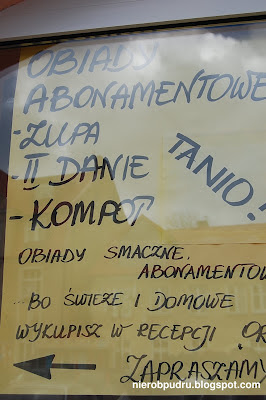 OBIADY
ABONAMENTOWE
- ZUPA
- II DANIE
- KOMPOT
TANIO!
OBIADY SMACZNE,
ABONAMENTOW
BO ŚWIEŻE I DOMOWE
WYKUPISZ W RECEPCJI "OR
ZAPRASZAMY
nierobpudru.blogspot.com